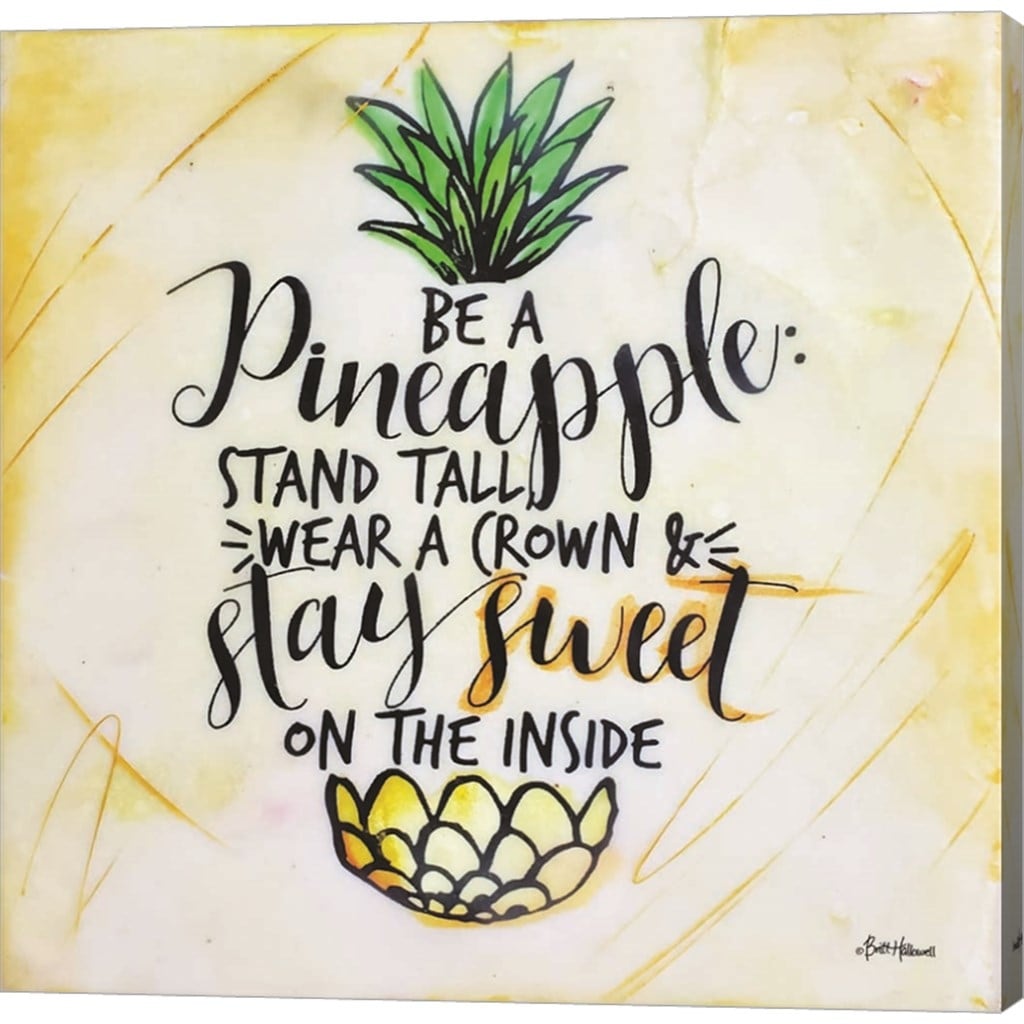 BE A
Pineapple:
STAND TALL,
WEAR A CROWN &
stay sweet
ON THE INSIDE
© Britt Hallowell